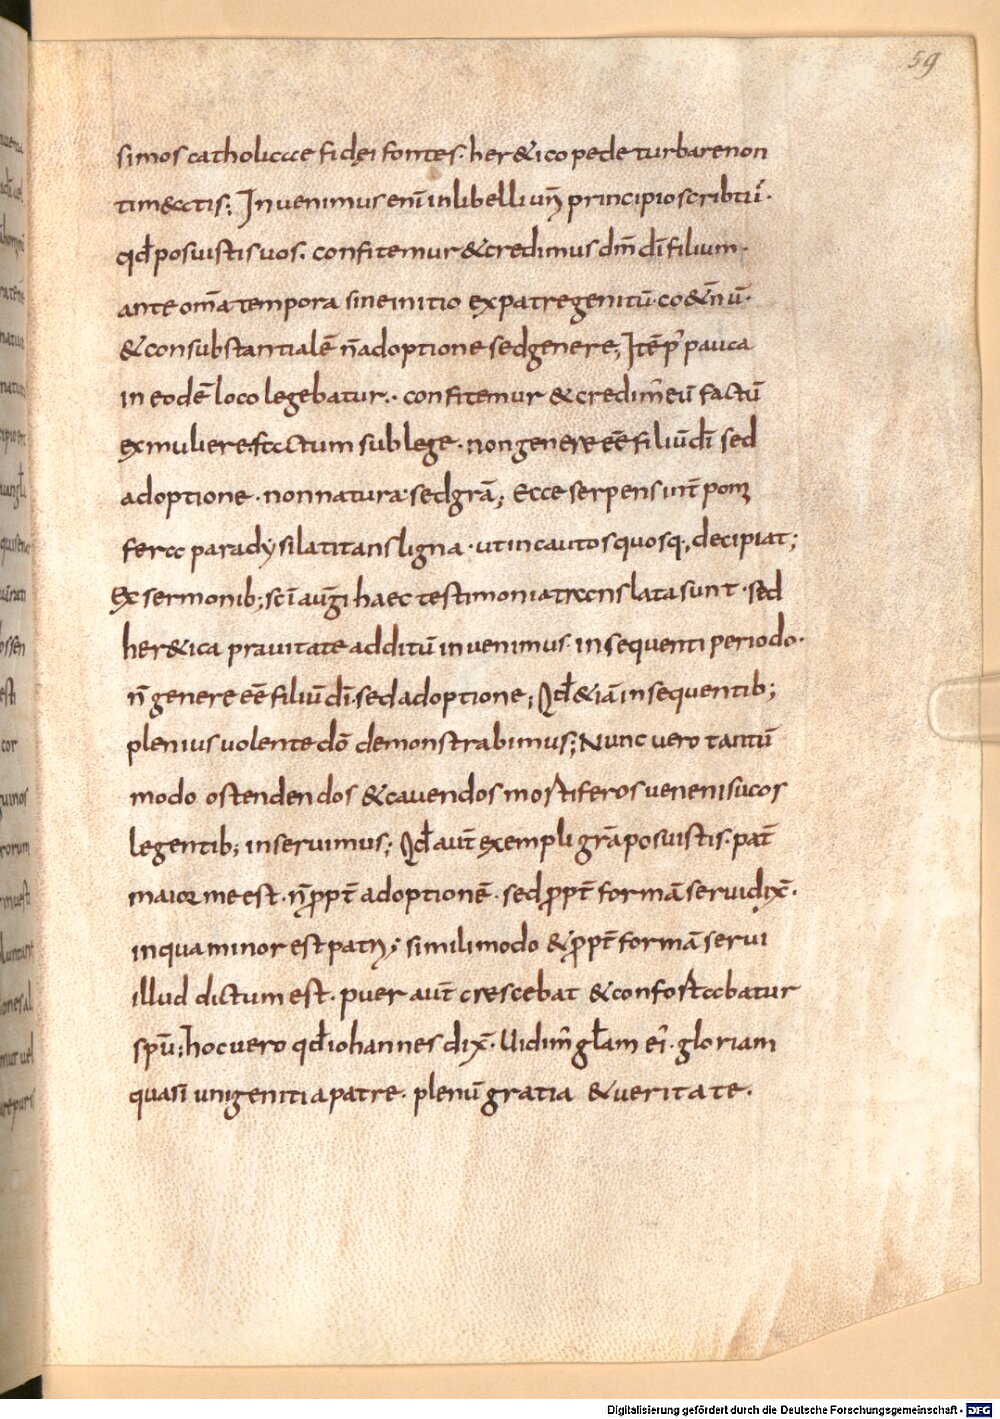 59
simos catholicae fidei fontes· her&ico pede turbare non
tim&atis; Inuenimus enī in libelli urī principio scribtū·
qđ posuistis uos. confitemur & credimus dm̄ dī filium·
ante om̄a tempora sine initio ex patre genitū· co&ernū·
& consubstantialē n̄ adoptione sed genere; Itē p' pauca
in eodē loco legebatur·. confitemur & credim' eū factū
ex muliere· factum sub lege· non genere eē filiū dī sed
adoptione· non natura· sed grā; Ecce serpens int̄ pom
fera paradysi latitans ligna· ut incautos quosq; decipiat;
Ex sermonib; scī augī haec testimonia translata sunt· sed
her&ica prauitate additū inuenimus· in sequenti periodo·
n̄ genere eē filiū dī· sed adoptione; Qđ & iā in sequentib;
plenius uolente dō demonstrabimus; Nunc uero tantū
modo ostendendos & cauendos mortiferos ueneni sucos
legentib; inseruimus; Qđ aut̄ exempli grā posuistis· pat̄
maior me est· n̄ ppt̄ adoptionē· sed ppt̄ formā serui dix̄·
in qua minor est patri; simili modo & ppt̄ formā serui
illud dictum est· puer aut̄ crescebat & confortabatur
spū; hoc uero qđ iohannes dix̄· Uidim' głam ei'· gloriam
quasi unigeniti a patre· plenū gratia & ueritate·
Digitalisierung gefördert durch die Deutsche Forschungsgemeinschaft - DFG